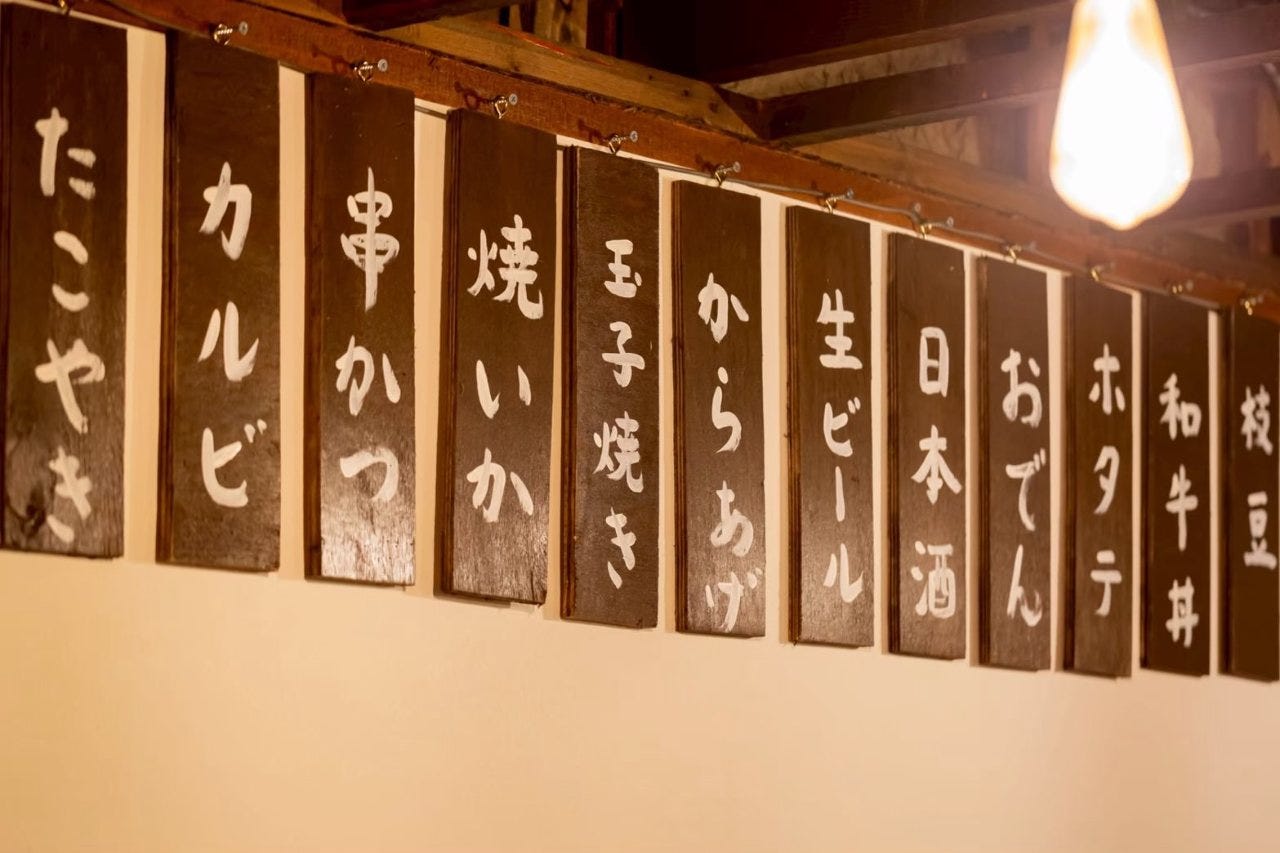 たこやき
カルビ
串かつ
焼いか
玉子焼き
からあげ
生ビール
日本酒
おでん
ホタテ
和牛丼
枝豆